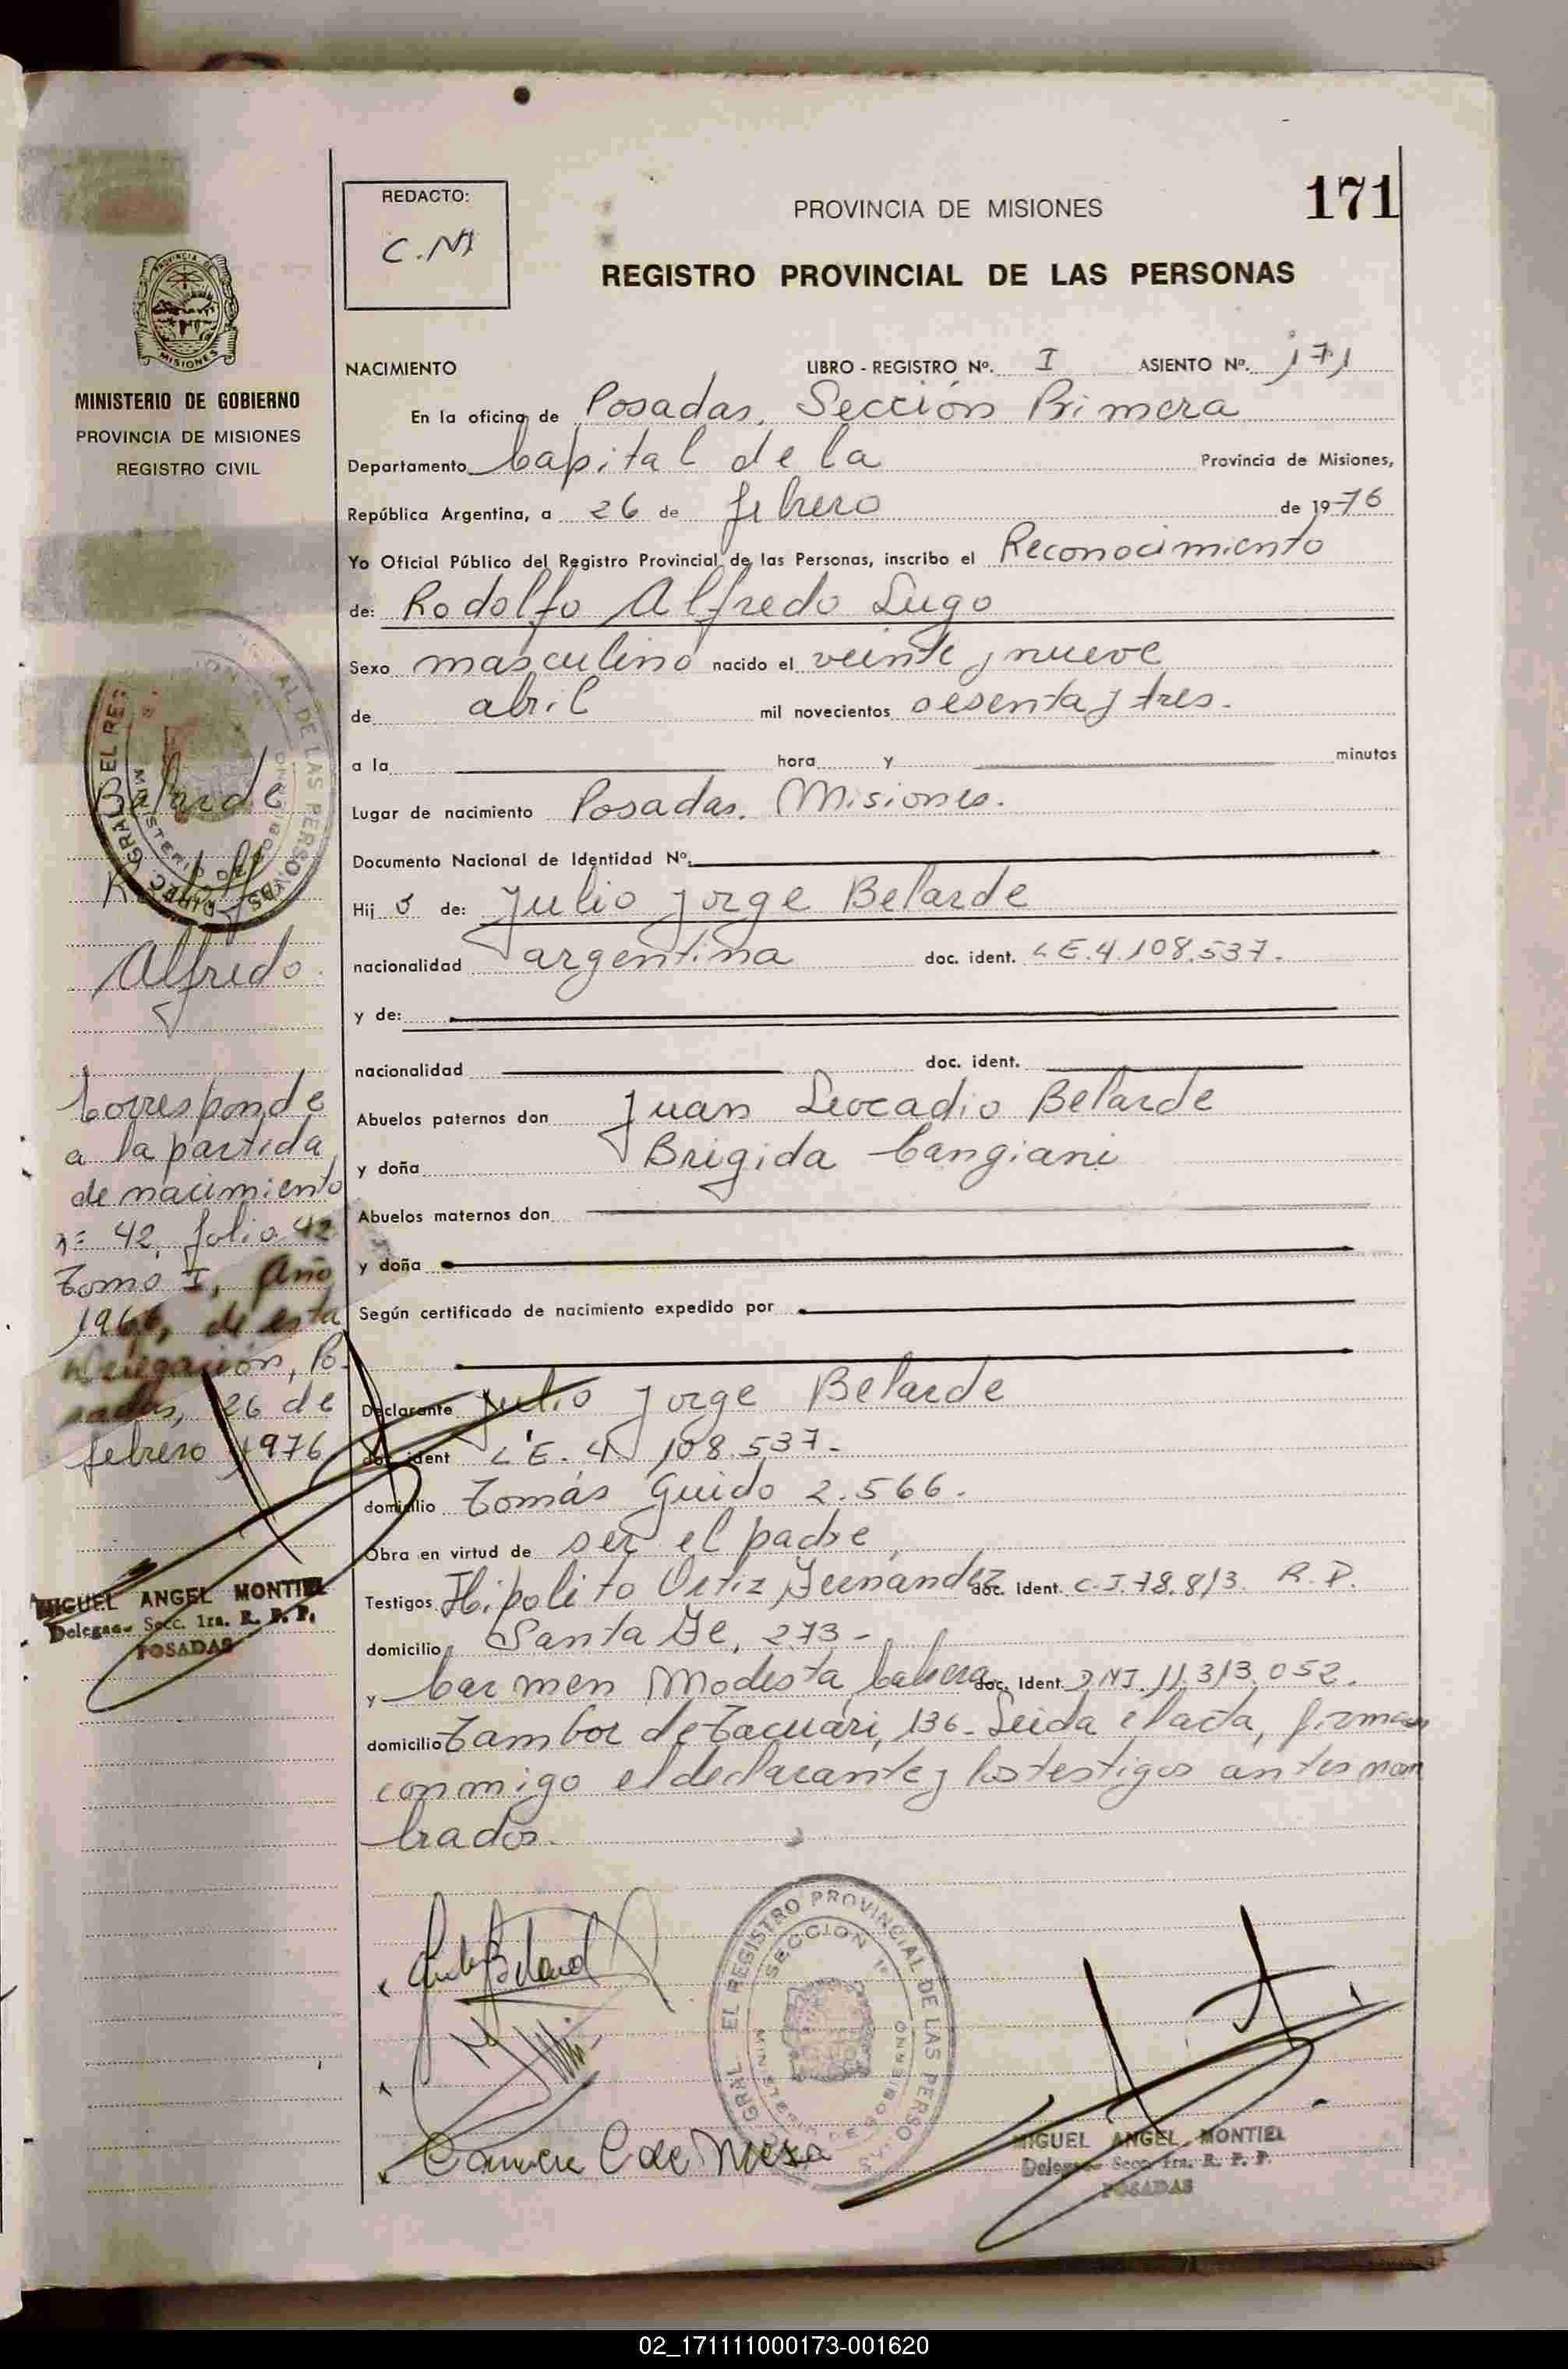 171
REDACTO:
C.M
PROVINCIA DE MISIONES
REGISTRO PROVINCIAL DE LAS PERSONAS
PROVINCIA DE MISIONES
MINISTERIO DE GOBIERNO
PROVINCIA DE MISIONES
REGISTRO CIVIL
NACIMIENTO LIBRO - REGISTRO Nº. I ASIENTO Nº. 171
En la oficina de Posadas, Sección Primera
Departamento Capital de la Provincia de Misiones,
República Argentina, a 26 de febrero de 1976
Yo Oficial Público del Registro Provincial de las Personas, inscribo el Reconocimiento
de: Rodolfo Alfredo Lugo
Sexo masculino nacido el veinte y nueve
de abril mil novecientos sesenta y tres.
a la hora y minutos
Lugar de nacimiento Posadas. Misiones.
Documento Nacional de Identidad Nº.
Hij o de: Julio Jorge Belarde
nacionalidad argentina doc. ident. L E. 4.108.537.
y de:
nacionalidad doc. ident.
Abuelos paternos don Juan Leocadio Belarde
y doña Brigida Cangiani
Abuelos maternos don
y doña
Según certificado de nacimiento expedido por
Declarante Julio Jorge Belarde
doc. ident L E. 4 108.537-
domicilio Tomás Guido 2.566.
Obra en virtud de ser el padre,
Testigos Hipolito Ortiz Fernandez doc. Ident. C.I. 78.813. R.P.
domicilio Santa Fe, 273-
y Carmen Modesta Cabrera doc. Ident. DNI. 11.313.052.
domicilio Tambor de Tacuari, 136- Leida el acta, firman
conmigo el declarante y los testigos antes nom
brados.
Belarde
Rodolfo
Alfredo.
Corresponde
a la partida
de nacimiento
nº 42, folio 42
Tomo I, Año
1966, de esta
Delegación, Po-
sadas, 26 de
febrero 1976
MIGUEL ANGEL MONTIEL
Delegado Secc. 1ra. R. P. P.
POSADAS
EL REGISTRO PROVINCIAL DE LAS PERSONAS
SECCION 1ª
MINISTERIO DE GOBIERNO
Carmen C de Meza
MIGUEL ANGEL MONTIEL
Delegado Secc. 1ra. R. P. P.
POSADAS
02_171111000173-001620